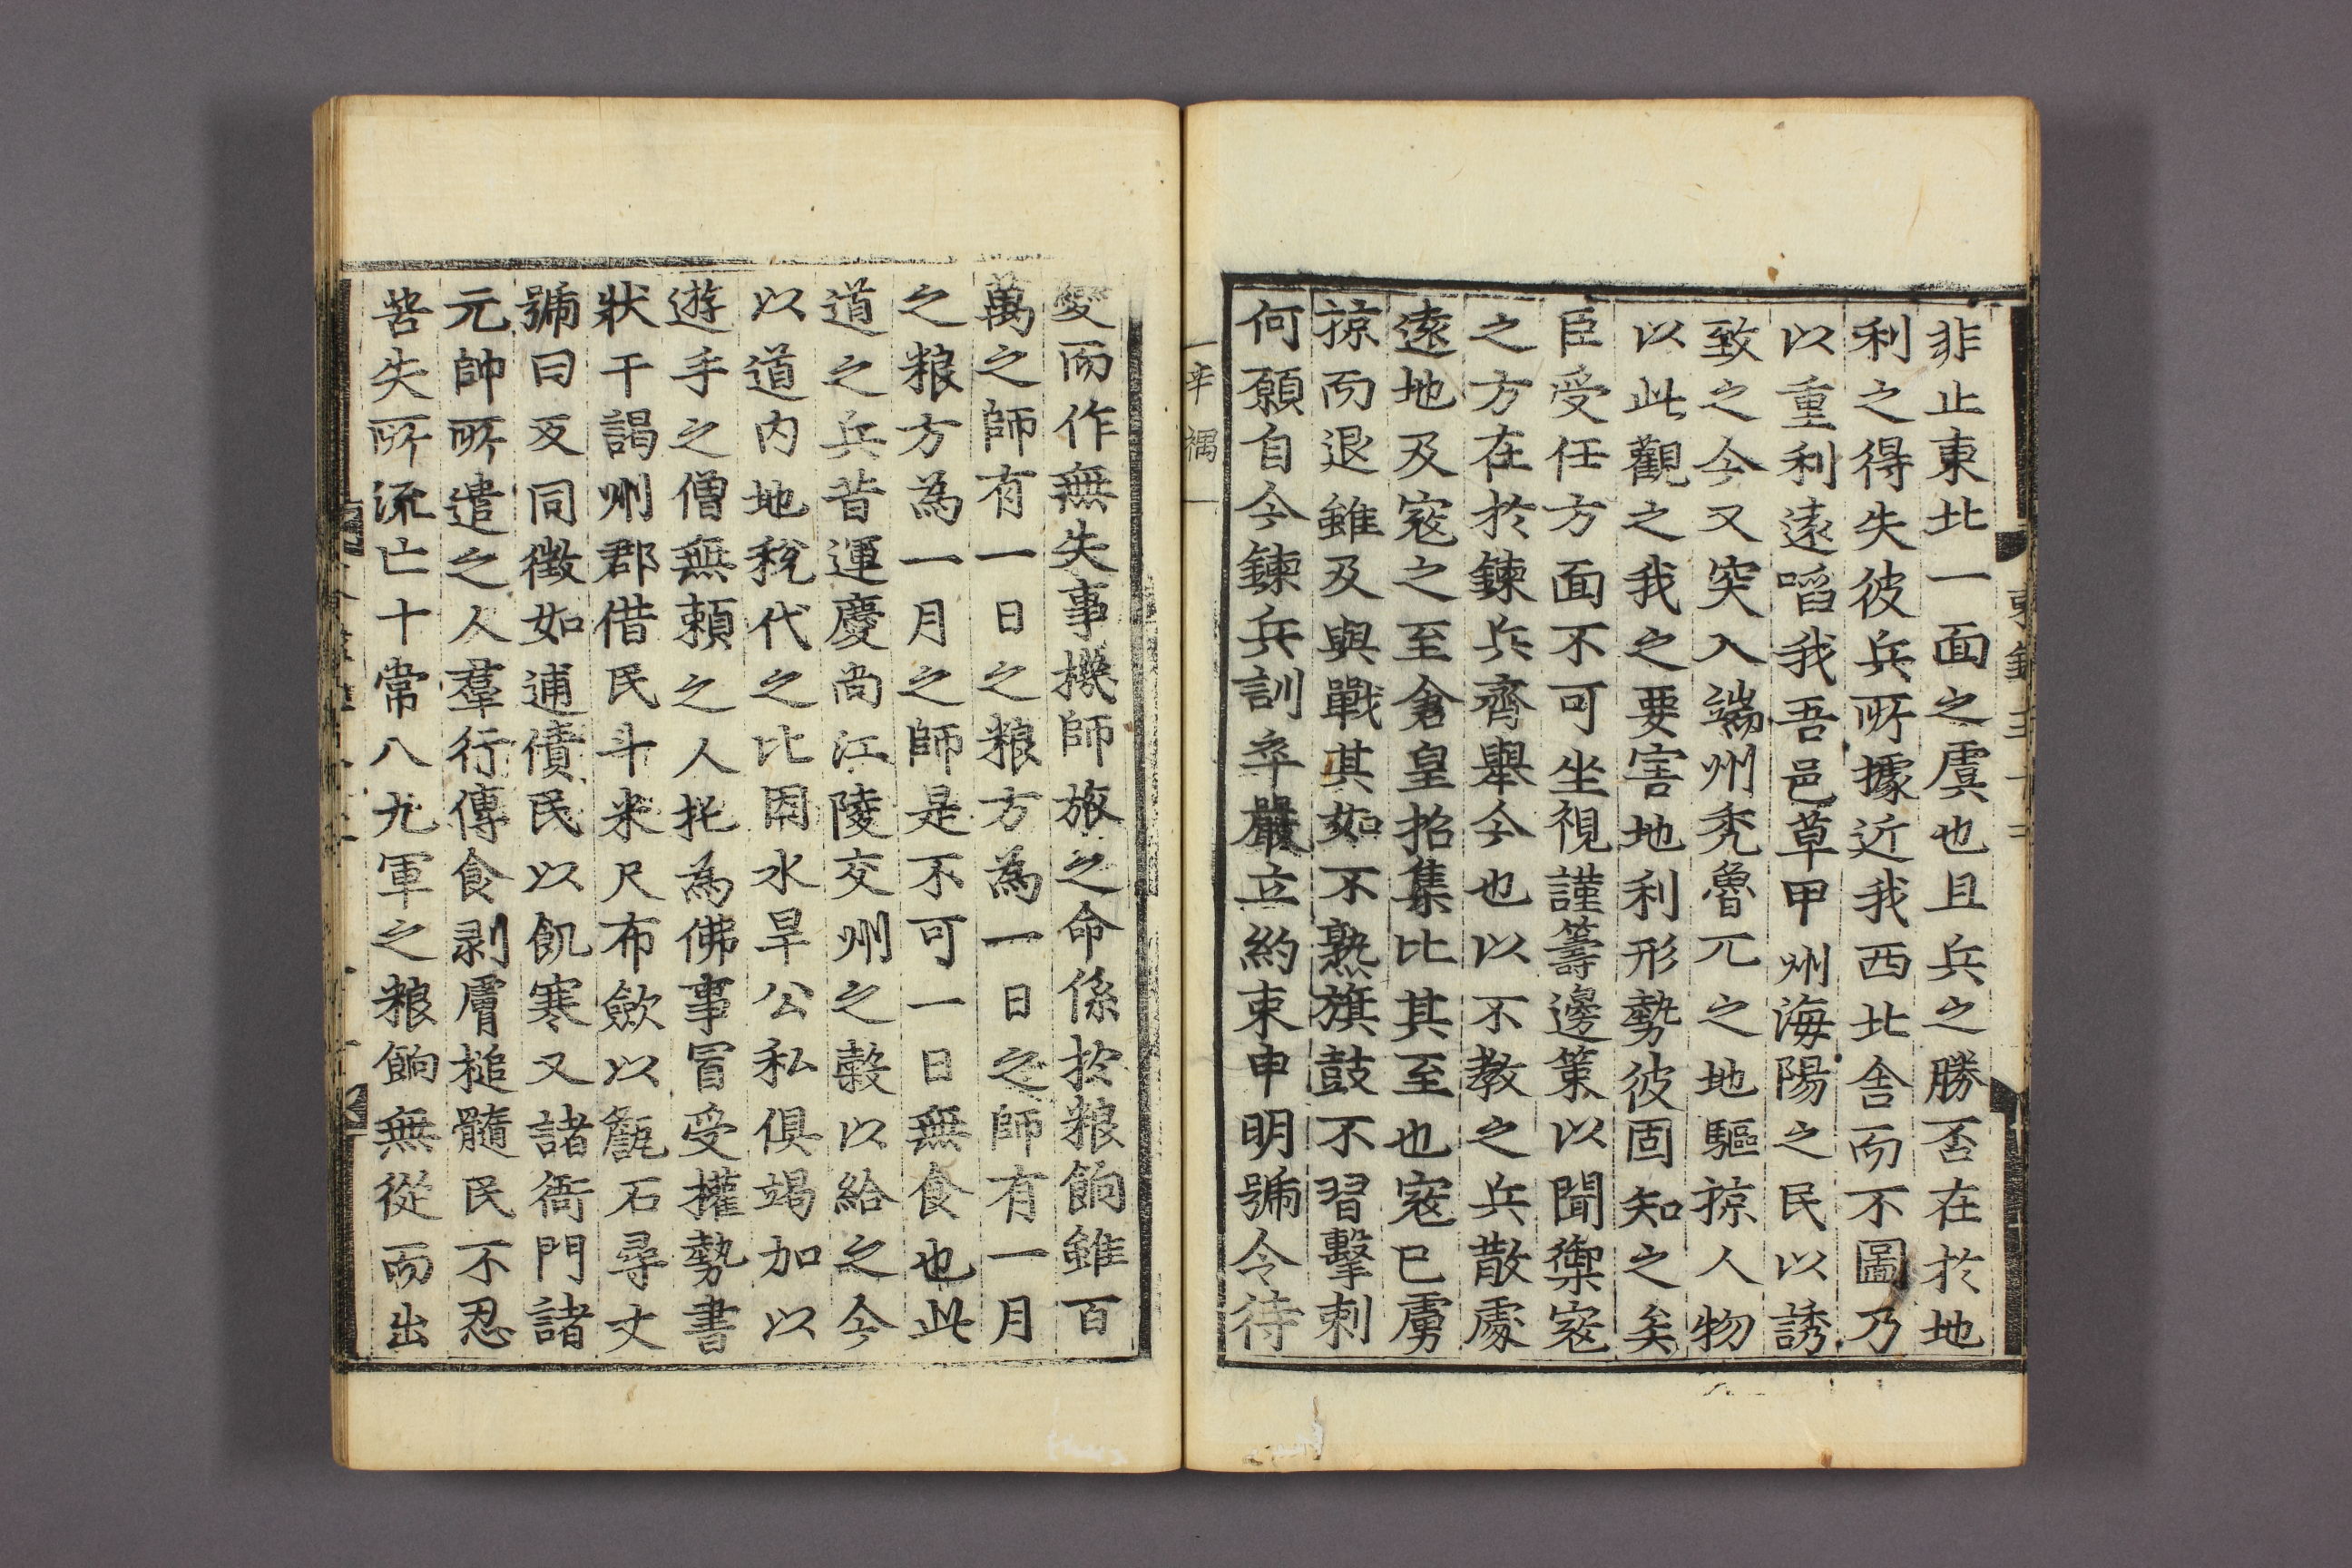 非止東北一面之虞也且兵之勝否在於地
利之得失彼兵所據近我西北舍而不圖乃
以重利遠啗我吾邑草甲州海陽之民以誘
致之今又突入端州禿魯兀之地驅掠人物
以此觀之我之要害地利形勢彼固知之矣
臣受任方面不可坐視謹籌邊策以聞禦寇
之方在於鍊兵齊舉今也以不教之兵散處
遠地及寇之至倉皇招集比其至也寇已虜
掠而退雖及與戰其如不熟旗鼓不習擊刺
何願自今鍊兵訓卒嚴立約束申明號令待
辛禑
變而作無失事機師旅之命係於粮餉雖百
萬之師有一日之粮方為一日之師有一月
之粮方為一月之師是不可一日無食也此
道之兵昔運慶尚江陵交州之穀以給之今
以道內地稅代之比因水旱公私俱竭加以
遊手之僧無賴之人托為佛事冒受權勢書
狀干謁州郡借民斗米尺布歛以甔石尋丈
號曰反同徵如逋債民以飢寒又諸衙門諸
元帥所遣之人羣行傳食剥膚槌髓民不忍
苦失所流亡十常八九軍之粮餉無從而出